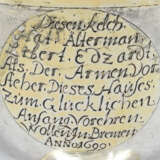 Diesen Kelch
Hat Alterman
Etbert. Edzardi
Als. Der. Armen Vor
steher. Dieses Hauses
zum Glücklichen
Anfang Vorehren
Wollen In Bremen
ANNO 1699.